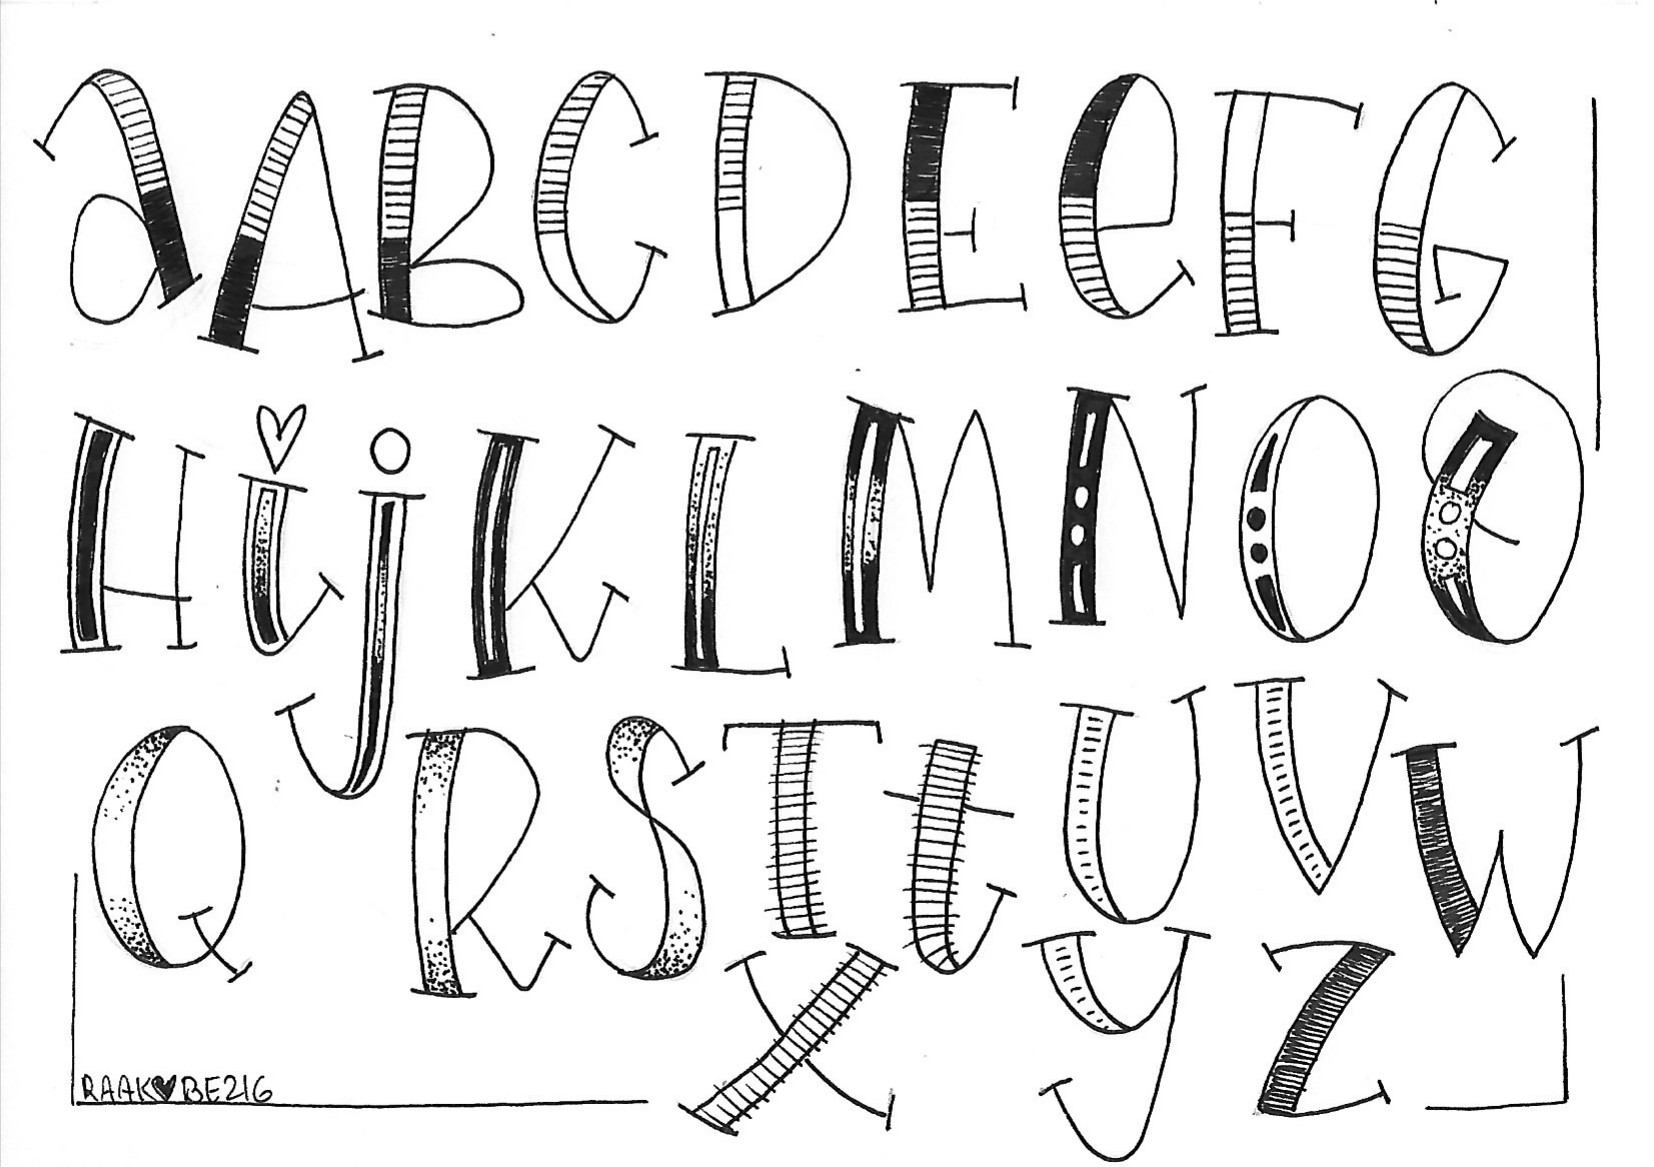 a A B C D E e F G
H i j K L M N O O
Q R S T t U V W
X y Z
RAAK♥BEZIG